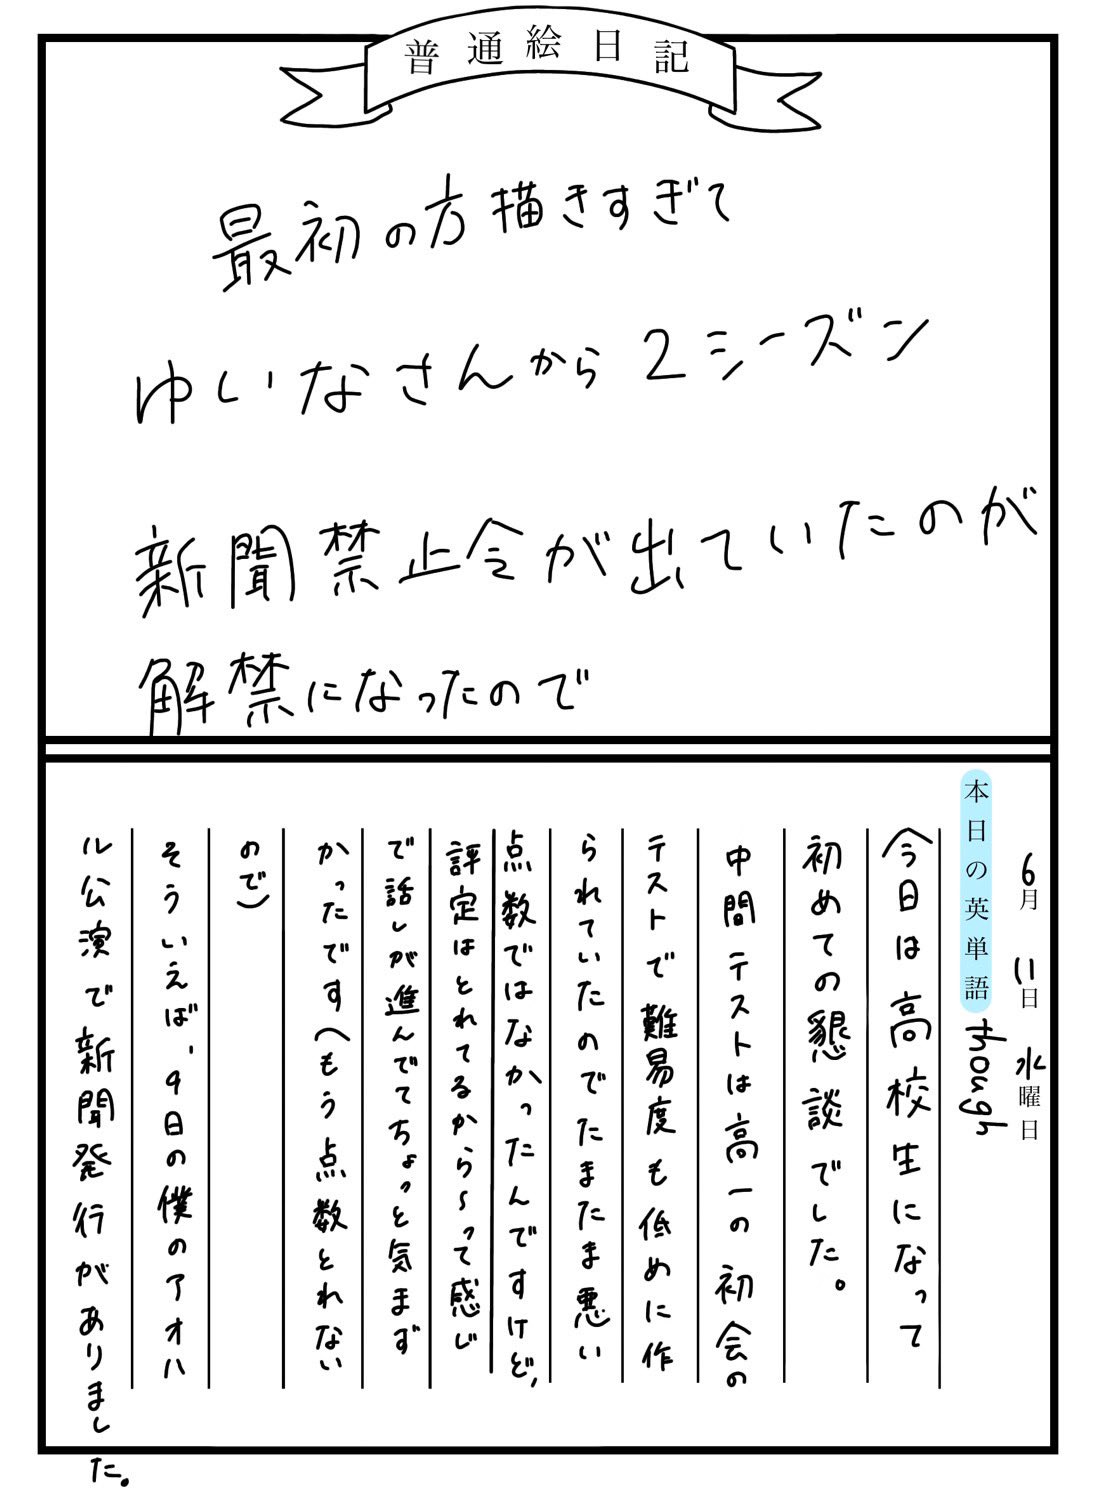 普通絵日記
最初の方描きすぎて
ゆいなさんから2シーズン
新聞禁止令が出ていたのが
解禁になったので
6月11日水曜日
本日の英単語 though
今日は高校生になって
初めての懇談でした。
中間テストは高一の初会の
テストで難易度も低めに作
られていたのでたまたま悪い
点数ではなかったんですけど、
評定はとれてるから〜って感じ
で話しが進んでてちょっと気まず
かったです(もう点数とれない
ので)
そういえば、9日の僕のアオハ
ル公演で新聞発行がありました。